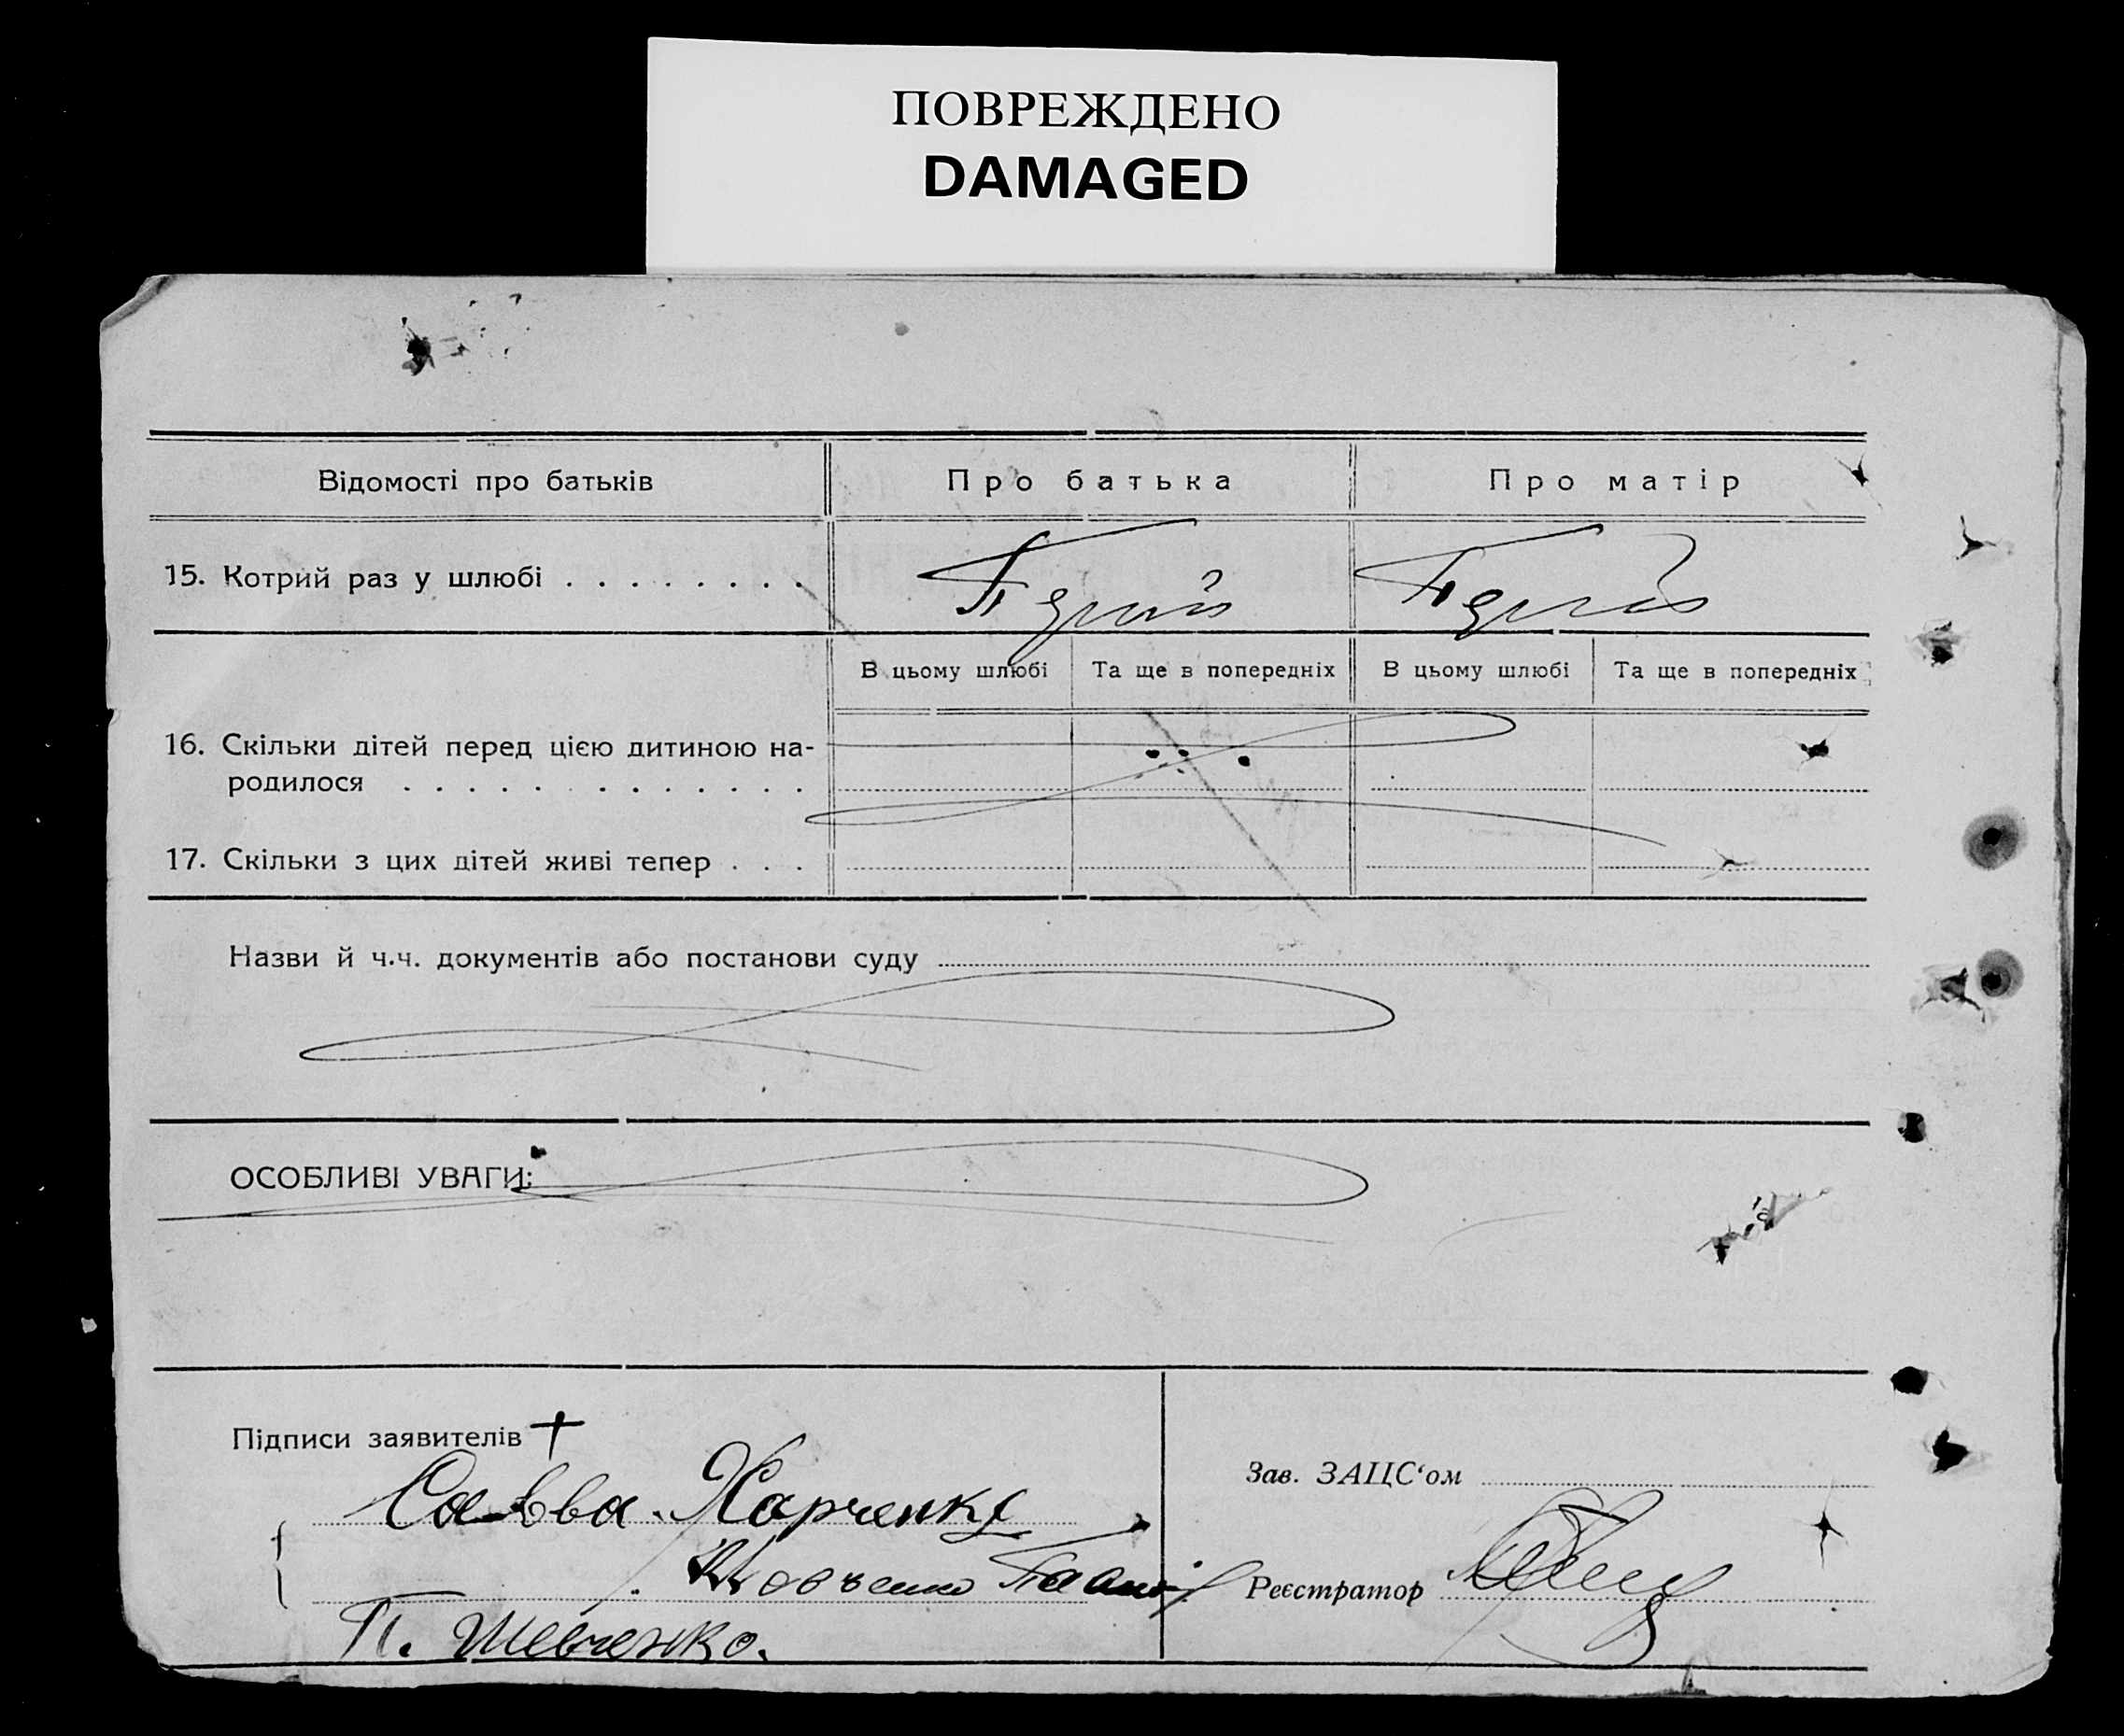 ПОВРЕЖДЕНО
DAMAGED
Відомості про батьків
Про батька
Про матір
15. Котрий раз у шлюбі . . . . . . . .
В цьому шлюбі
Та ще в попередніх
В цьому шлюбі
Та ще в попередніх
16. Скільки дітей перед цією дитиною на-
родилося . . . . . . . . . . . . .
17. Скільки з цих дітей живі тепер . . .
Назви й ч.ч. документів або постанови суду
ОСОБЛИВІ УВАГИ:
Підписи заявителів +
Савва Харченко
П. Шевченко.
Зав. ЗАЦС‘ом
Реєстратор